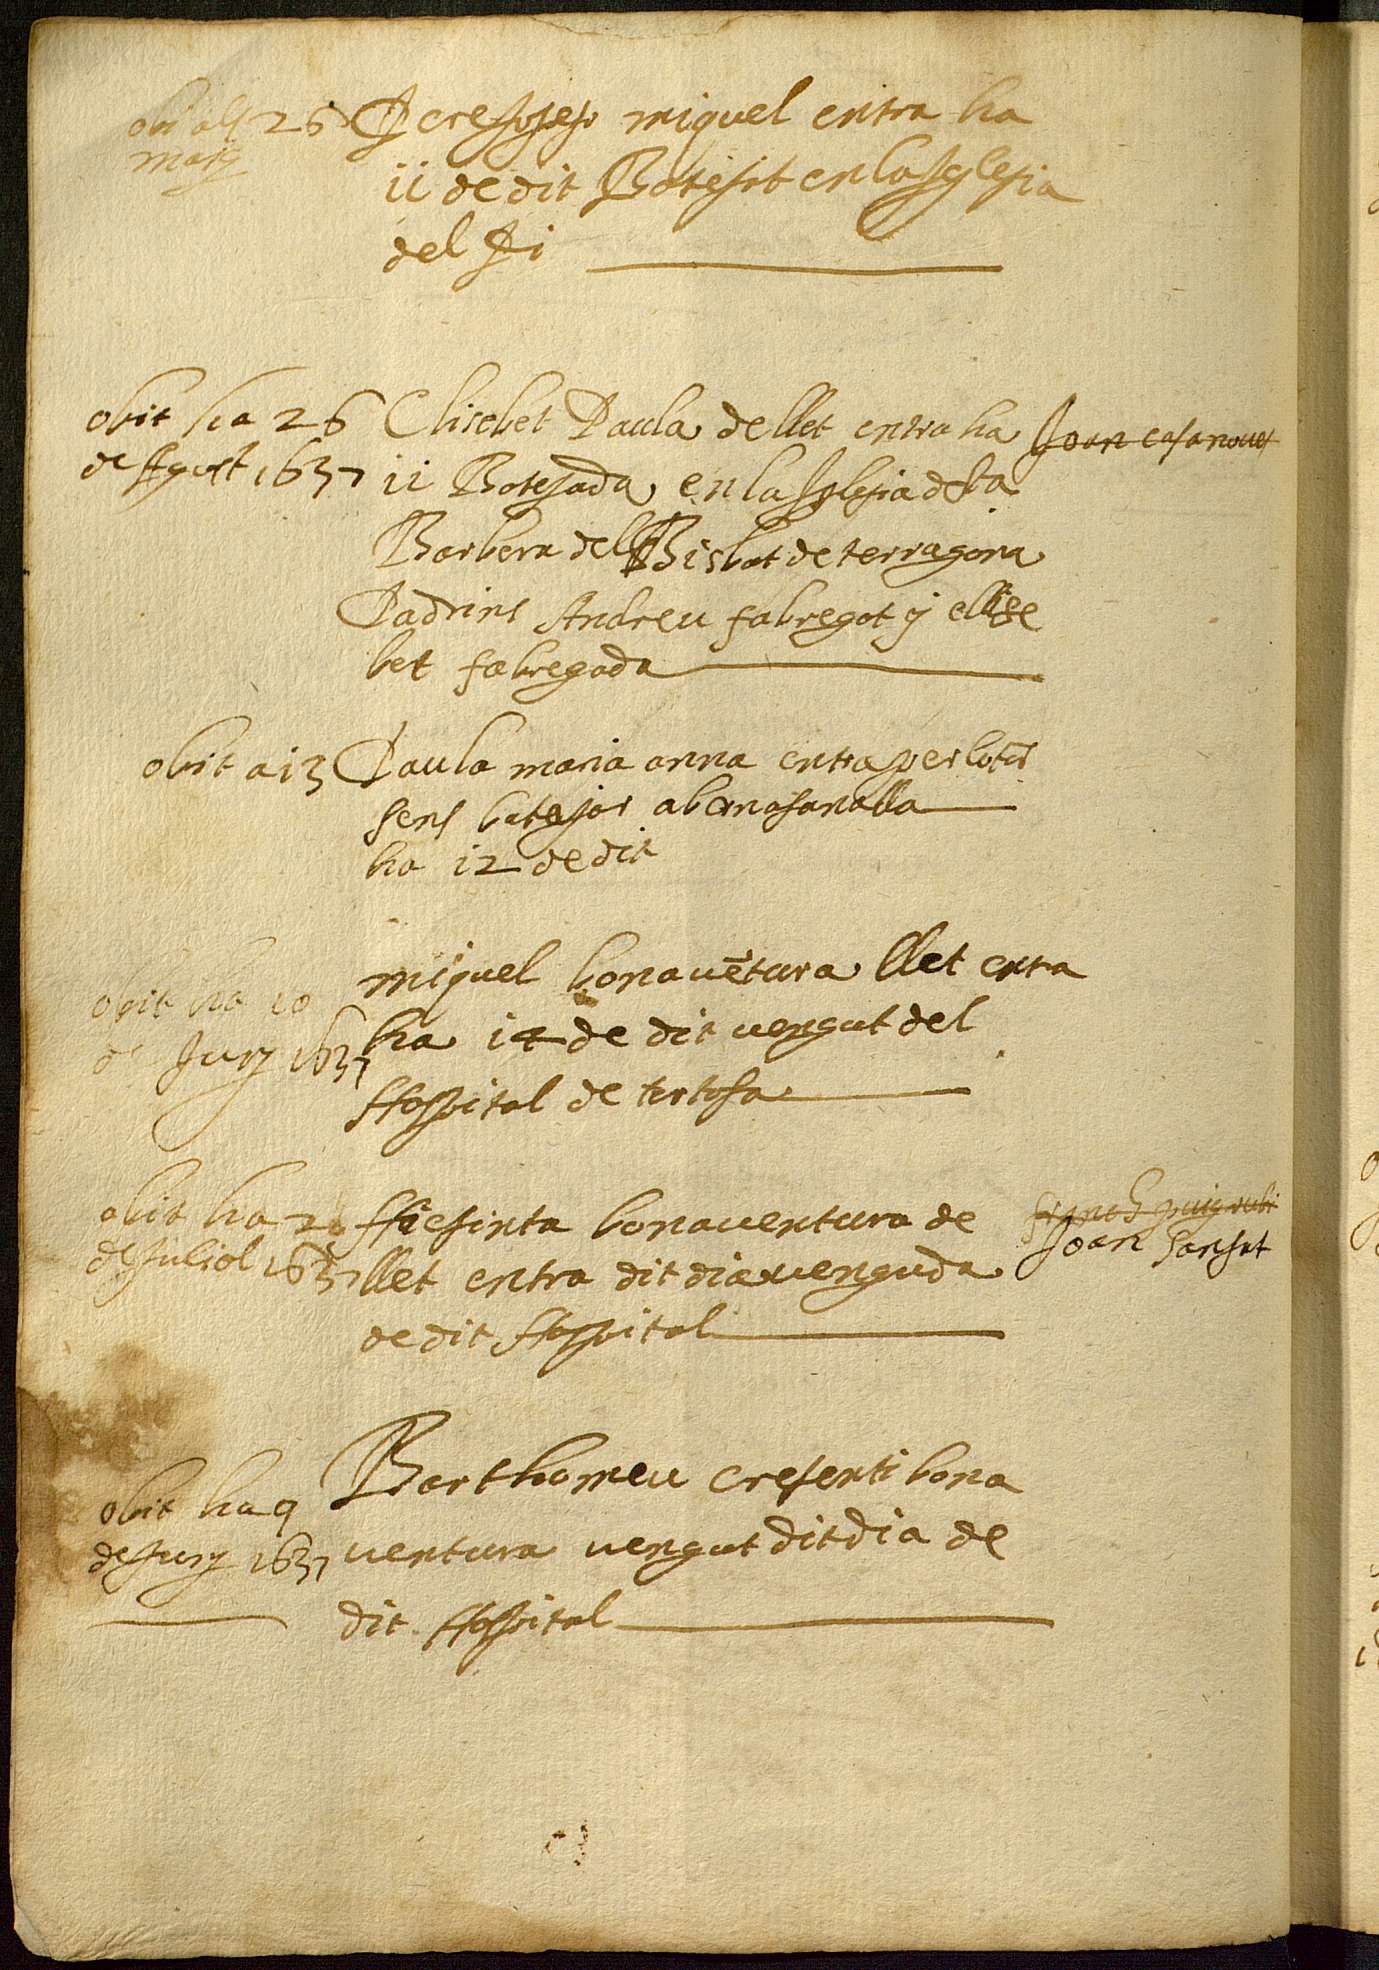 obi als 26
maig
Pere Josep miquel entra ha
ii de dit Batejat en la Iglesia
del Pi
obit ha 26
de Agost 1637
Elisebet Paula de llet entra ha
Joan casanoves
ii Batejada en la Iglesia de
Barbera del Bisbat de terragona
Padrins Andreu fabregat y elise
bet fabregada
obit a 13
Paula maria anna entra per lo torn
sens batejar
ha 12 de dit
miquel bonavẽtura llet entra
obit ha 10
ha 14 de dit vengut del
de Juny 1637
Hospital de tortosa
obit ha
de Juliol 1637
Hiesinta bonaventura de
Joan sansat
llet entra dit dia venguda
de dit Hospital
Barthomeu cresenti bona
obit ha 9
de Juny 1637
ventura vengut dit dia de
dit Hospital